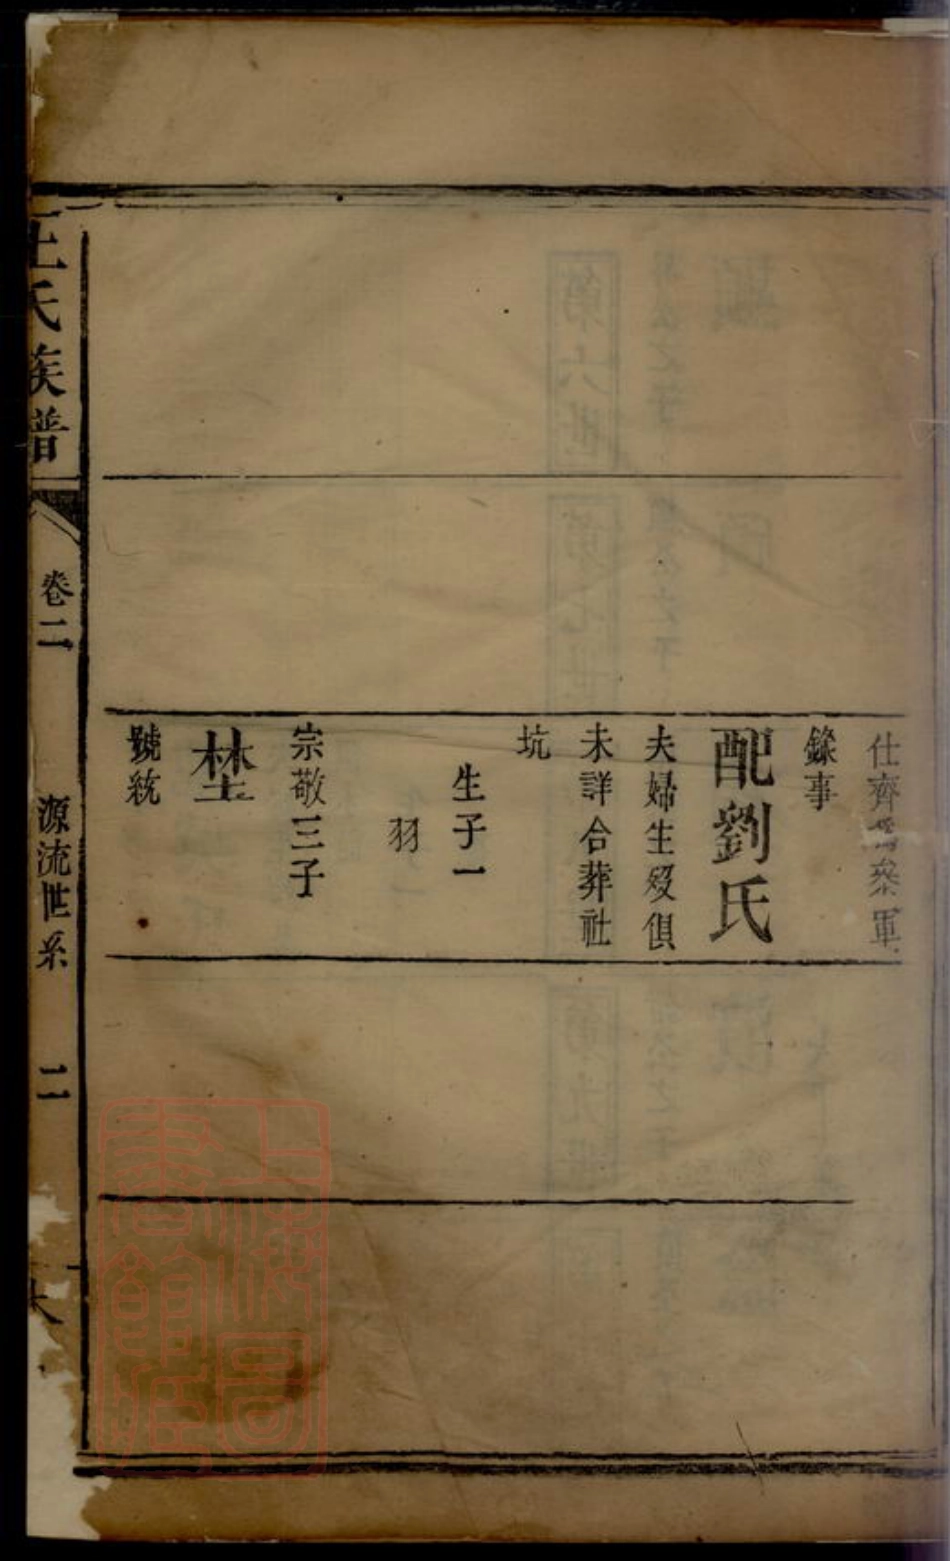 仕齊爲叅軍
錄事
配劉氏
夫婦生歿俱
未詳合葬社
坑
生子一
羽
宗敬三子
埜
號統
王氏族譜
卷二
源流世系
二
上海圖書館藏